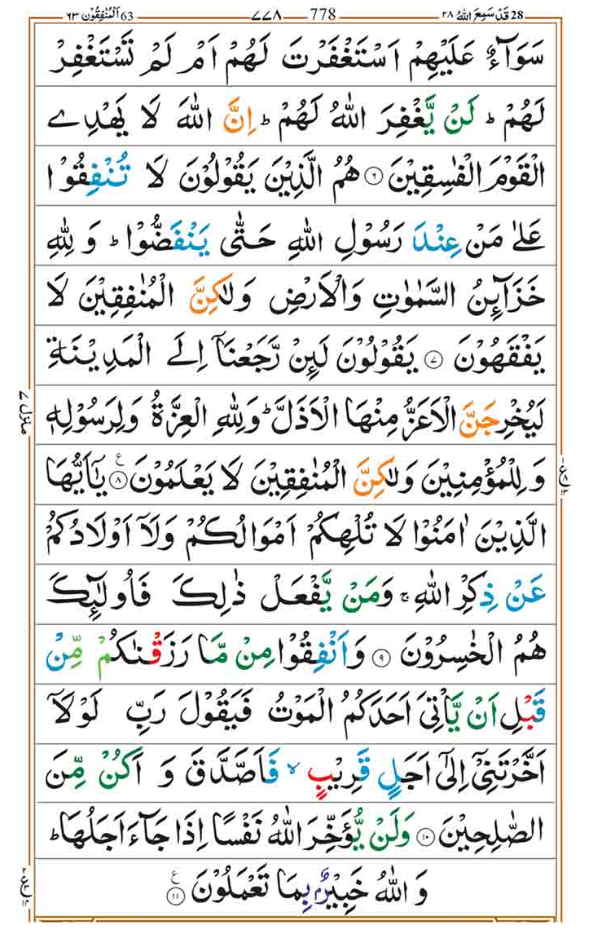 قَدْ سَمِعَ اللّٰهُ 28 ٢٨ 778 ٧٧٨ اَلْمُنٰفِقُوْن 63 ٦٣
سَوَآءٌ عَلَيْهِمْ اَسْتَغْفَرْتَ لَهُمْ اَمْ لَمْ تَسْتَغْفِرْ
لَهُمْ ؕ لَنْ يَّغْفِرَ اللّٰهُ لَهُمْ ؕ اِنَّ اللّٰهَ لَا يَهْدِے
الْقَوْمَ الْفٰسِقِيْنَ ۶ هُمُ الَّذِيْنَ يَقُوْلُوْنَ لَا تُنْفِقُوْا
عَلٰى مَنْ عِنْدَ رَسُوْلِ اللّٰهِ حَتّٰى يَنْفَضُّوْا ؕ وَ لِلّٰهِ
خَزَآئِنُ السَّمٰوٰتِ وَالْاَرْضِ وَلٰكِنَّ الْمُنٰفِقِيْنَ لَا
يَفْقَهُوْنَ ۷ يَقُوْلُوْنَ لَئِنْ رَّجَعْنَاۤ اِلَى الْمَدِيْنَةِ
لَيُخْرِجَنَّ الْاَعَزُّ مِنْهَا الْاَذَلَّ ؕ وَلِلّٰهِ الْعِزَّةُ وَلِرَسُوْلِهٖ
وَلِلْمُؤْمِنِيْنَ وَلٰكِنَّ الْمُنٰفِقِيْنَ لَا يَعْلَمُوْنَ ۸ ع يٰۤاَيُّهَا
الَّذِيْنَ اٰمَنُوْا لَا تُلْهِكُمْ اَمْوَالُكُمْ وَلَاۤ اَوْلَادُكُمْ
عَنْ ذِكْرِ اللّٰهِ ۚ وَمَنْ يَّفْعَلْ ذٰلِكَ فَاُولٰٓئِكَ
هُمُ الْخٰسِرُوْنَ ۹ وَاَنْفِقُوْا مِنْ مَّا رَزَقْنٰكُمْ مِّنْ
قَبْلِ اَنْ يَّاْتِىَ اَحَدَكُمُ الْمَوْتُ فَيَقُوْلَ رَبِّ لَوْلَاۤ
اَخَّرْتَنِىْۤ اِلٰٓى اَجَلٍ قَرِيْبٍ ۙ فَاَصَّدَّقَ وَ اَكُنْ مِّنَ
الصّٰلِحِيْنَ ۱۰ وَلَنْ يُّؤَخِّرَ اللّٰهُ نَفْسًا اِذَا جَآءَ اَجَلُهَا ؕ
وَ اللّٰهُ خَبِيْرٌۢ بِمَا تَعْمَلُوْنَ ۱۱ ع
منزل ٧